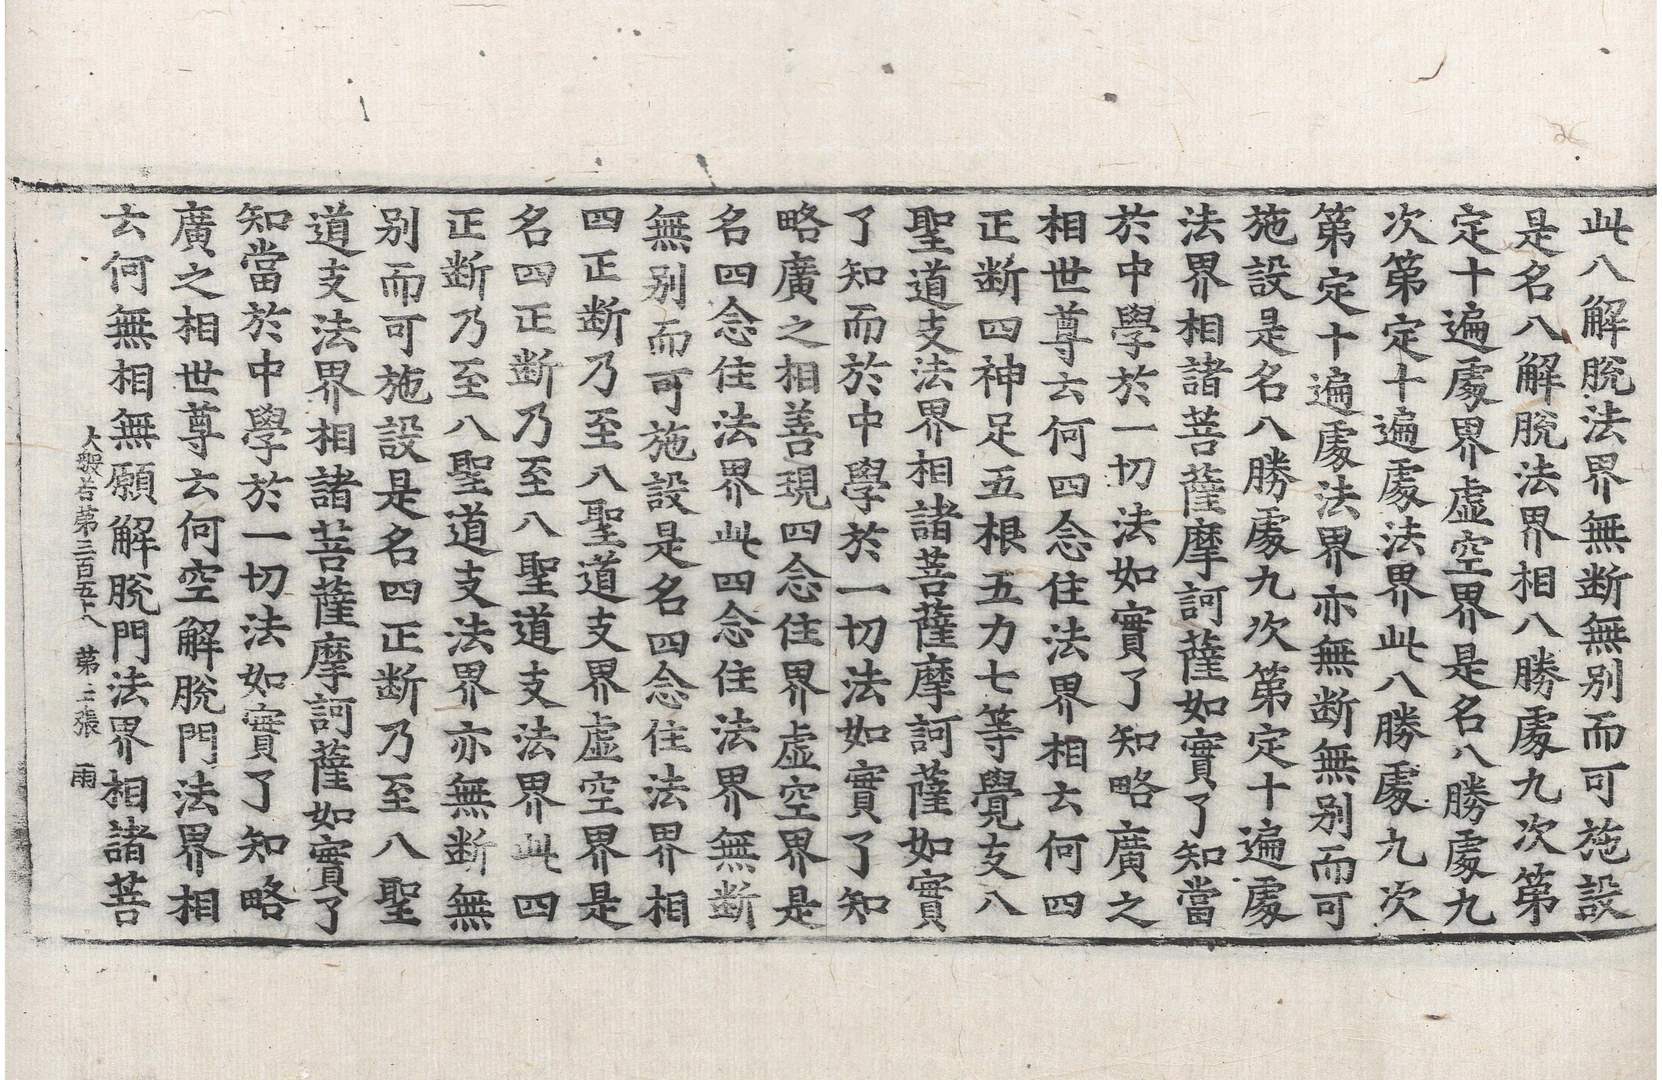 此八解脫法界無断無别而可施設
是名八解脫法界相八勝處九次第
定十遍處界虛空界是名八勝處九
次第定十遍處法界此八勝處九次
第定十遍處法界亦無断無别而可
施設是名八勝處九次第定十遍處
法界相諸菩薩摩訶薩如實了知當
於中學於一切法如實了知略廣之
相世尊云何四念住法界相云何四
正断四神足五根五力七等覺支八
聖道支法界相諸菩薩摩訶薩如實
了知而於中學於一切法如實了知
略廣之相善現四念住界虛空界是
名四念住法界此四念住法界無断
無别而可施設是名四念住法界相
四正断乃至八聖道支界虛空界是
名四正断乃至八聖道支法界此四
正断乃至八聖道支法界亦無断無
别而可施設是名四正断乃至八聖
道支法界相諸菩薩摩訶薩如實了
知當於中學於一切法如實了知略
廣之相世尊云何空解脫門法界相
云何無相無願解脫門法界相諸菩
大般若第三百五十八 第三張 雨